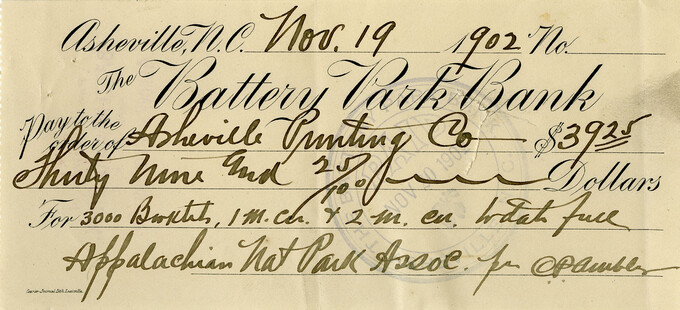 Asheville, N.C. Nov. 19 1902 No.
The Battery Park Bank
Pay to the order of Asheville Printing Co $39 25
Thirty Nine and 25/100 Dollars
For 3000 Booklets, 1 m. & 2 m. to date full
Appalachian Nat Park Assoc. per CP Ambler